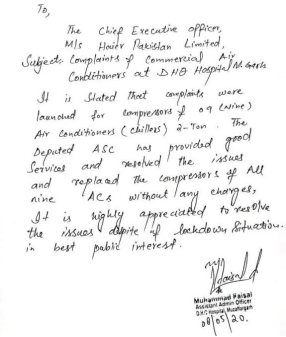 To,
The Chief Executive officer,
M/s Haier Pakistan Limited,
Subject: Complaints of Commercial Air
Conditioners at DHQ Hospital M. Garh
It is stated that complaints were
launched for compressors of 09 (Nine)
Air Conditioners (chillers) 2-Ton. The
Deputed ASC has provided good
Services and resolved the issues
and replaced the compressors of All
nine ACs without any charges,
It is highly appreciated to resolve
the issues dispite of lockdown situation.
in best public interest.
Muhammad Faisal
Assistant Admin Officer
D.H.Q Hospital, Muzaffargarh
08/05/20.